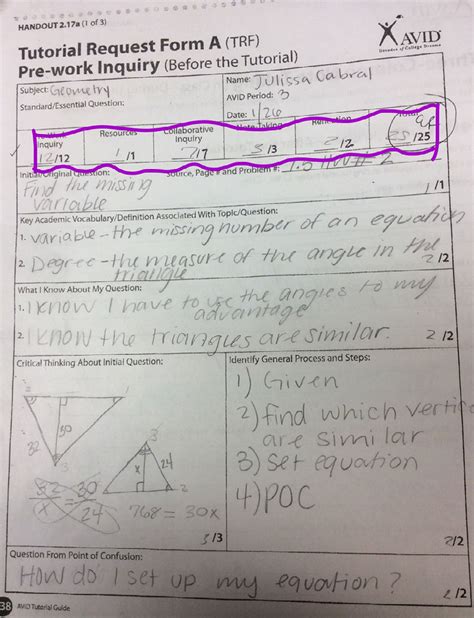 HANDOUT 2.17a (1 of 3)
AVID
Decades of College Dreams
Tutorial Request Form A (TRF)
Pre-work Inquiry (Before the Tutorial)
Subject: Geometry
Name: Julissa Cabral
Standard/Essential Question:
AVID Period: 3
Date: 1/26
Inquiry
12/12
Resources
1/1
Collaborative
Inquiry
7/7
Note-Taking
3/3
2/2
25/25
Initial/Original Question:
Source, Page # and Problem #: 1.5 HW # 2
Find the missing
variable
1/1
Key Academic Vocabulary/Definition Associated With Topic/Question:
1. variable - the missing number of an equation
2. Degree - the measure of the angle in the
triangle
2/2
What I Know About My Question:
1. I know I have to use the angles to my
advantage
2. I know the triangles are similar.
2/2
Critical Thinking About Initial Question:
Identify General Process and Steps:
30
32
3
3
x
24
2
32 = 30
x 24
768 = 30x
3/3
1) Given
2) find which
are similar
3) set equation
4) POC
2/2
Question From Point of Confusion:
How do I set up my equation?
2/2
38 AVID Tutorial Guide